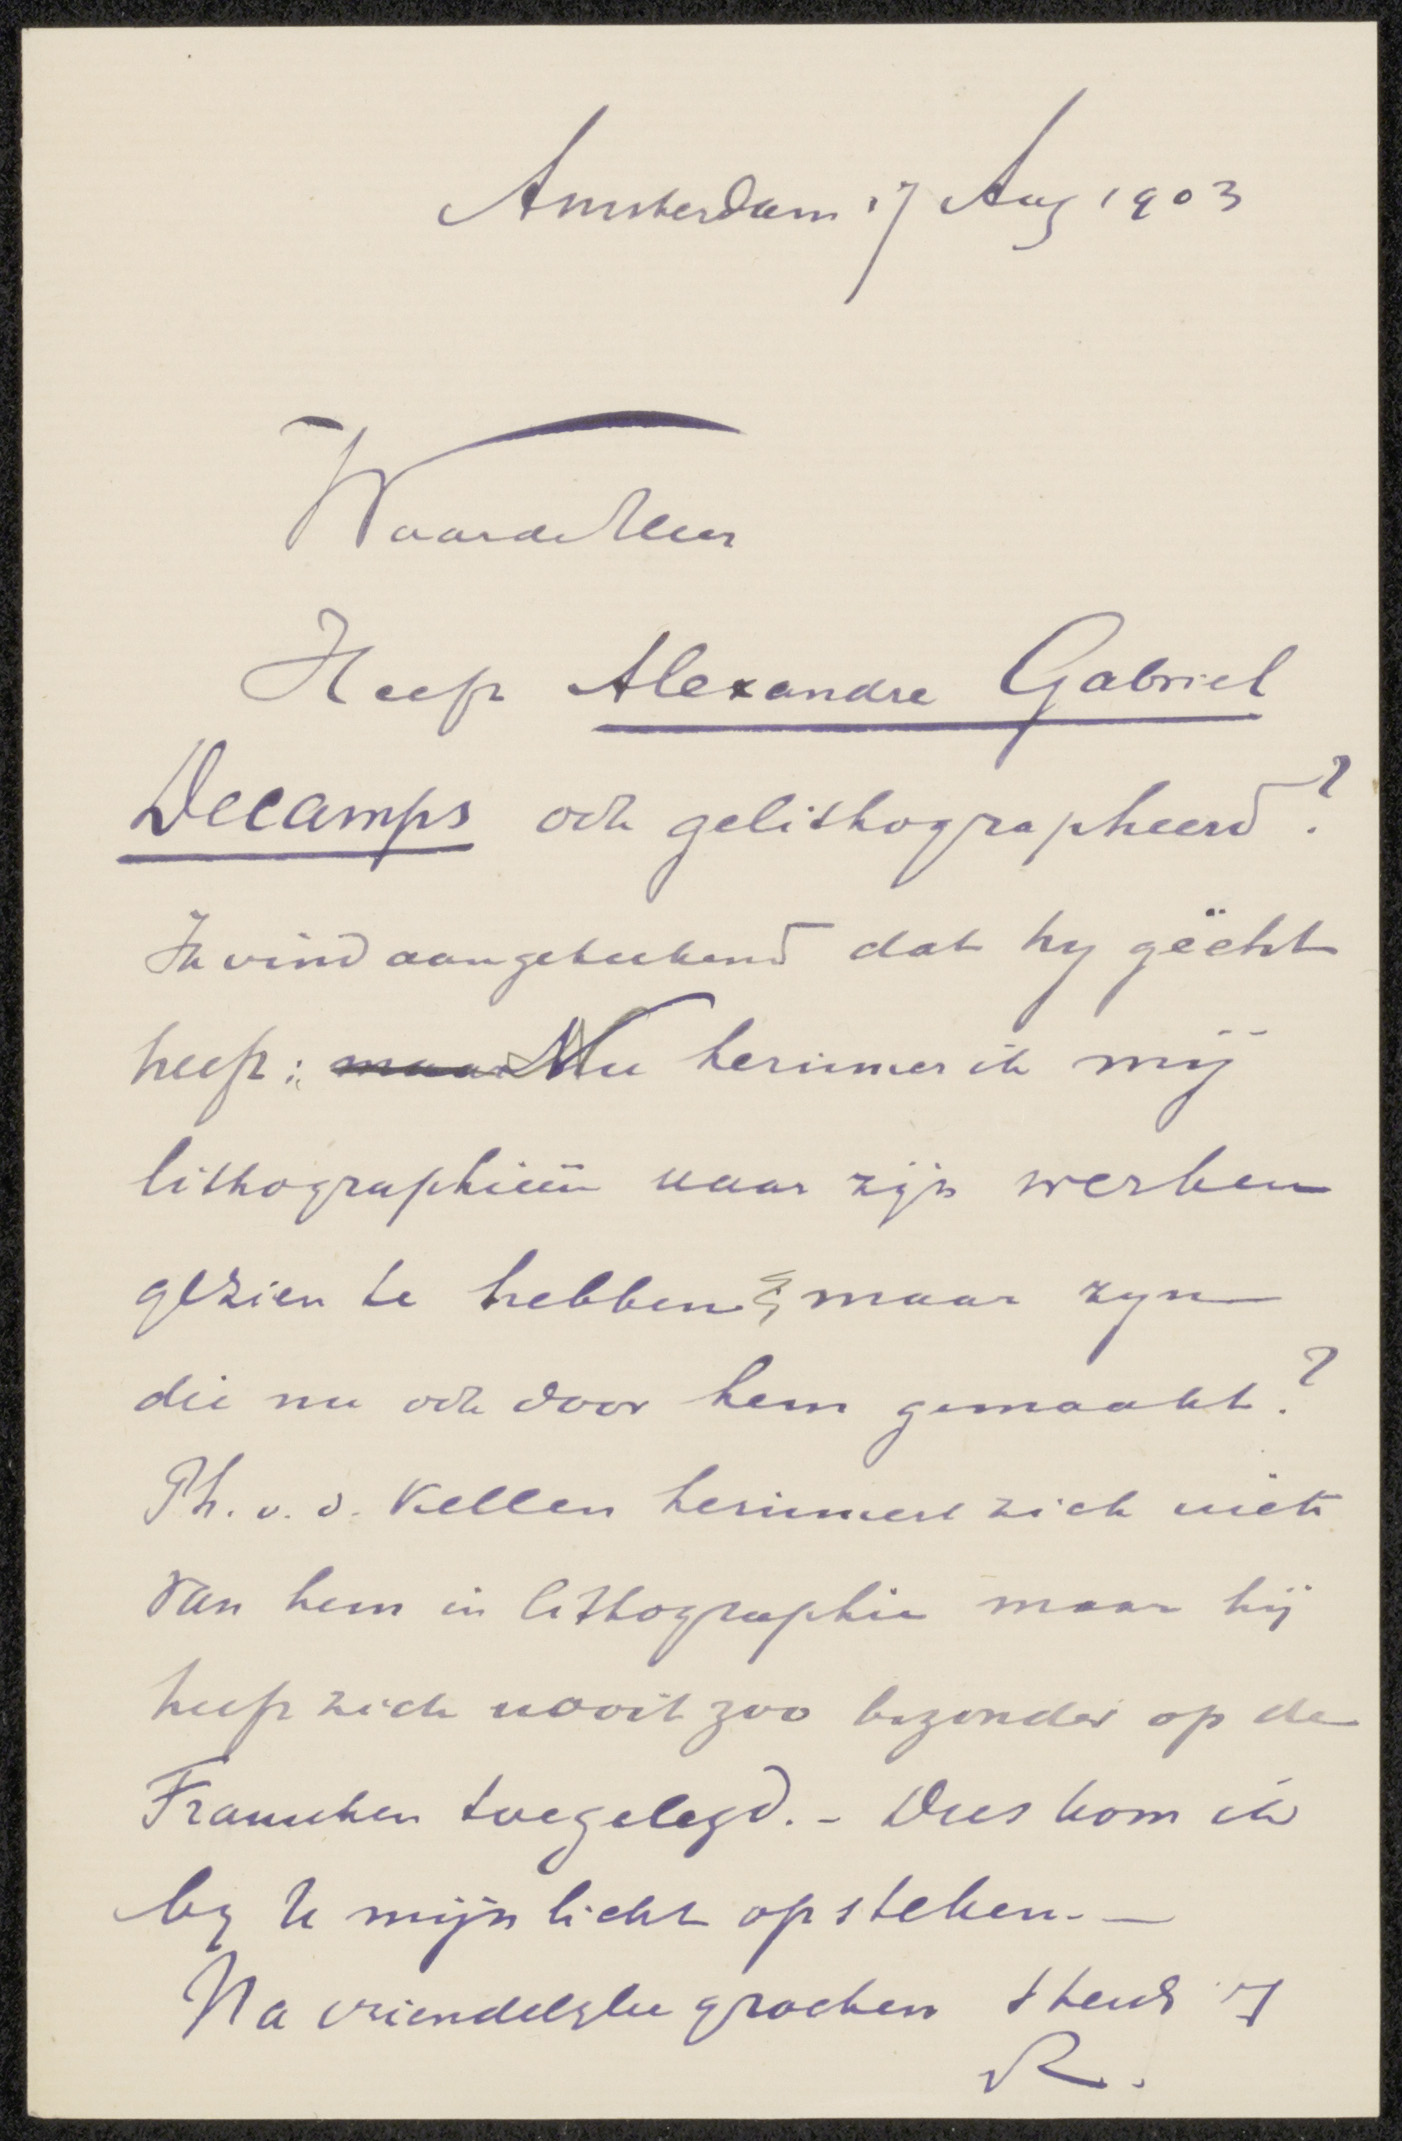 Amsterdam 17 Aug 1903
Waarde Heer
Heeft Alexandre Gabriel
Decamps ook gelithographeerd?
Ik vind aangeteekend dat hy geëtst
heeft; maar Nu herinner ik mij
lithographieën naar zijn werken
gezien te hebben, maar zyn
die nu ook door hem gemaakt?
Ph. v. d. Kellen herinnert zich niets
van hem in lithographie maar hij
heeft zich nooit zoo byzonder op de
Franschen toegelegd. - Dus kom ik
by U mijn licht opsteken. —
Na vriendelyke groeten steeds
R.